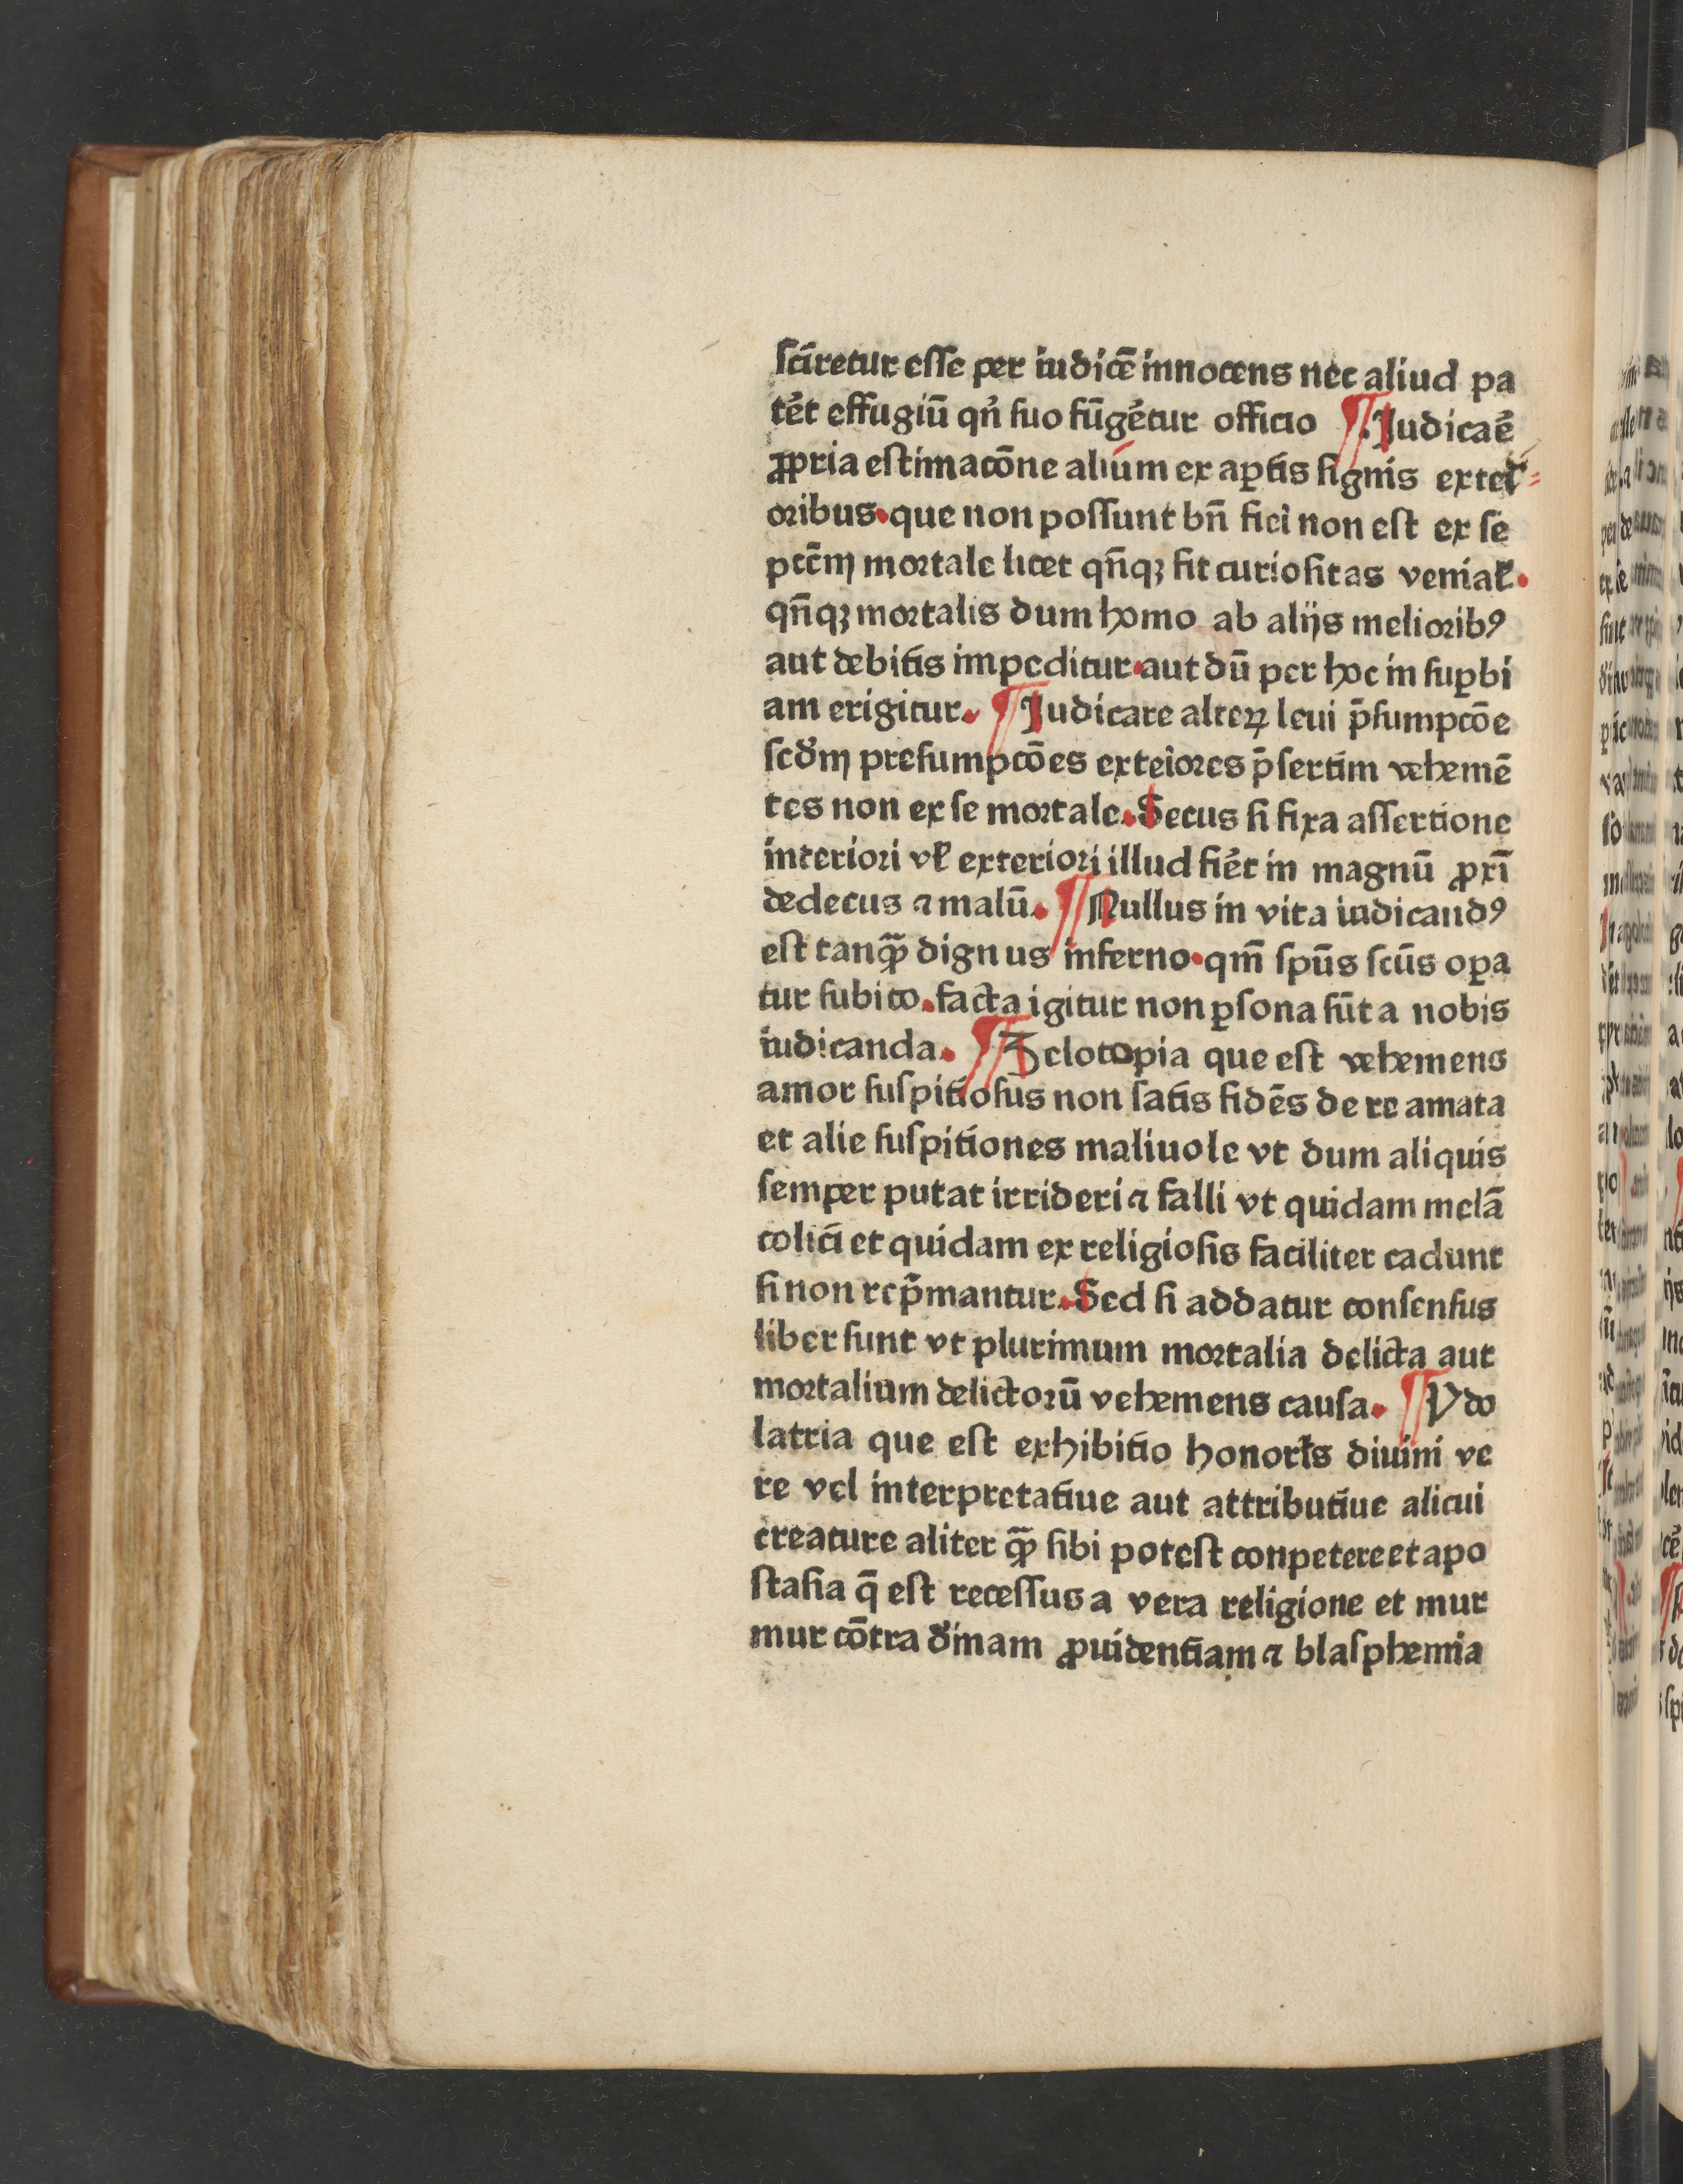 sciretur esse per iudicē innocens nec aliud pa
tēt effugiū qn̄ suo fūgēt̄ur officio ¶ .Iudicaē
ꝓpria estimacōne alium ex aꝑtis signis exteri
oribus. que non possunt bn̄ fieì non est ex se
pctm̄ mortale licet qn̄qꝫ sit curiositas veniał.
qn̄qꝫ mortalis dum homo ab alijs melioribꝯ
aut debitis impeditur. aut dū per hoc in suꝑbi
am erigitur. ¶ Iudicare alteꝝ leui p̄sumpcōe
scd̓m presumpcōes exteìores p̄sertim vehemē
tes non ex se mortale. Secus si fixa assertione
interiori vł exteriori illud fiēt in magnū ꝓxī
dedecus ⁊ malū. ¶ Nullus in vita iudicandꝯ
est tanqꝫ̄ dignus inferno. qm̄ spūs scūs oꝑa
tur subito. facta igitur non ꝑsona sūt a nobis
iudicanda. ¶ Zelotopia que est vehemens
amor suspitiosus non satis fidēs de re amata
et alie suspitiones maliuole vt dum aliquis
semper putat irrideri ⁊ falli vt quidam melā
colici et quidam ex religiosis faciliter cadunt
si non rep̄mantur. Sed si addatur consensus
liber sunt vt plurimum mortalia delicta aut
mortalium delictorū vehemens causa. ¶ Ydo
latria que est exhibitio honoris diuini ve
re vel interpretatiue aut attributiue alicui
creature aliter qꝫ̄ sibi potest conpetere et apo
stasia q̄ est recessus a vera religione et mur
mur cōtra d̓inam ꝓuidentiam ⁊ blasphemia